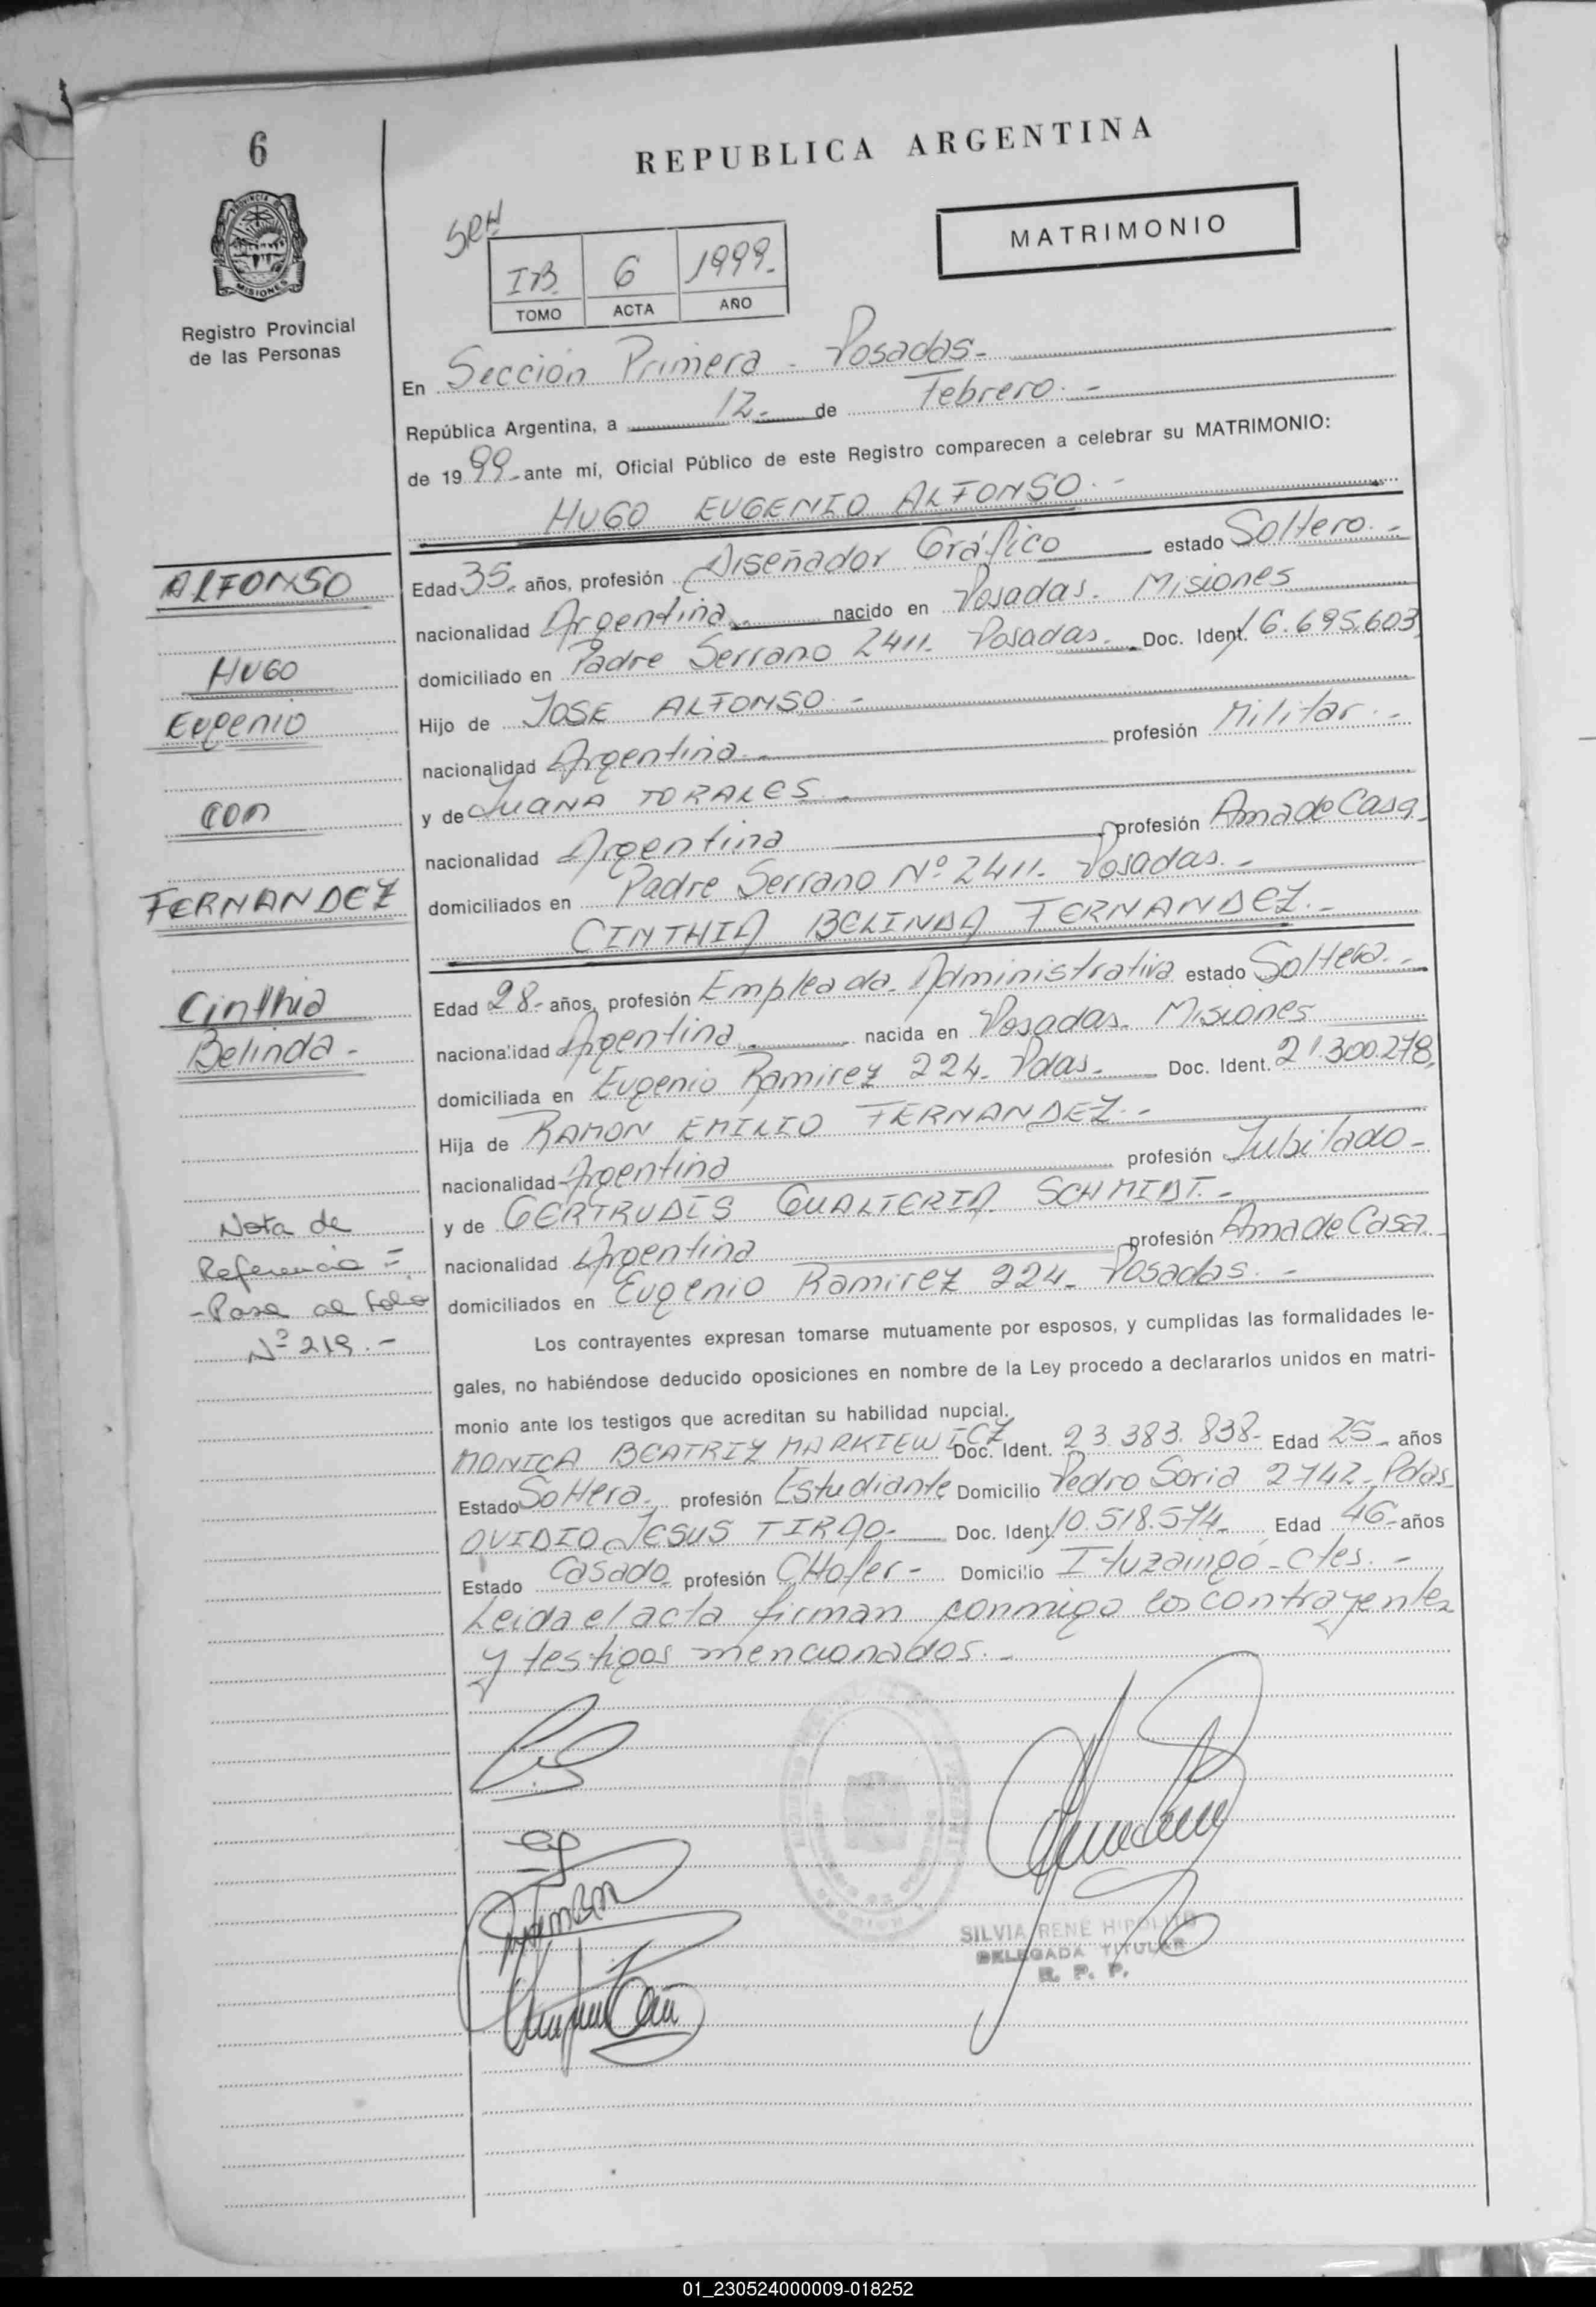 6
REPUBLICA ARGENTINA
PROVINCIA DE
MISIONES
Registro Provincial
de las Personas
MATRIMONIO
SRH
IB. 6 1999.-
TOMO ACTA AÑO
En Sección Primera - Posadas.-
República Argentina, a 12.- de Febrero.-
de 1999.- ante mí, Oficial Público de este Registro comparecen a celebrar su MATRIMONIO:
HUGO EUGENIO ALFONSO.-
ALFONSO
HUGO
Eugenio
con
FERNANDEZ
Cinthia
Belinda.-
Nota de
Referencia =
- Pase al folio
Nº 219.-
Edad 35.- años, profesión Diseñador Gráfico estado Soltero.-
nacionalidad Argentina.- nacido en Posadas. Misiones
domiciliado en Padre Serrano 2411.- Posadas.- Doc. Ident. 16.695.603
Hijo de JOSE ALFONSO.-
nacionalidad Argentina.- profesión Militar.-
y de JUANA TORALES.-
nacionalidad Argentina profesión Ama de Casa
domiciliados en Padre Serrano Nº 2411.- Posadas.-
CINTHIA BELINDA FERNANDEZ.-
Edad 28.- años, profesión Empleada Administrativa estado Soltera.-
nacionalidad Argentina.- nacida en Posadas. Misiones
domiciliada en Eugenio Ramirez 224.- Pdas.- Doc. Ident. 21.300.278
Hija de RAMON EMILIO FERNANDEZ.-
nacionalidad Argentina profesión Jubilado.-
y de GERTRUDIS GUALTERIA SCHMIDT.-
nacionalidad Argentina profesión Ama de Casa.
domiciliados en Eugenio Ramirez 224.- Posadas.-
Los contrayentes expresan tomarse mutuamente por esposos, y cumplidas las formalidades le-
gales, no habiéndose deducido oposiciones en nombre de la Ley procedo a declararlos unidos en matri-
monio ante los testigos que acreditan su habilidad nupcial.
MONICA BEATRIZ MARKIEWICZ Doc. Ident. 23.383.838.- Edad 25.- años
Estado Soltera.- profesión Estudiante Domicilio Pedro Soria 2742.- Pdas
OVIDIO JESUS TIRAO.- Doc. Ident. 10.518.574.- Edad 46.- años
Estado Casado profesión CHofer.- Domicilio Ituzaingó - Ctes.-
Leida el acta firman conmigo los contrayentes
y testigos mencionados.-
SILVIA RENE HIPOLITO
DELEGADA TITULAR
R. P. P.
01_230524000009-018252